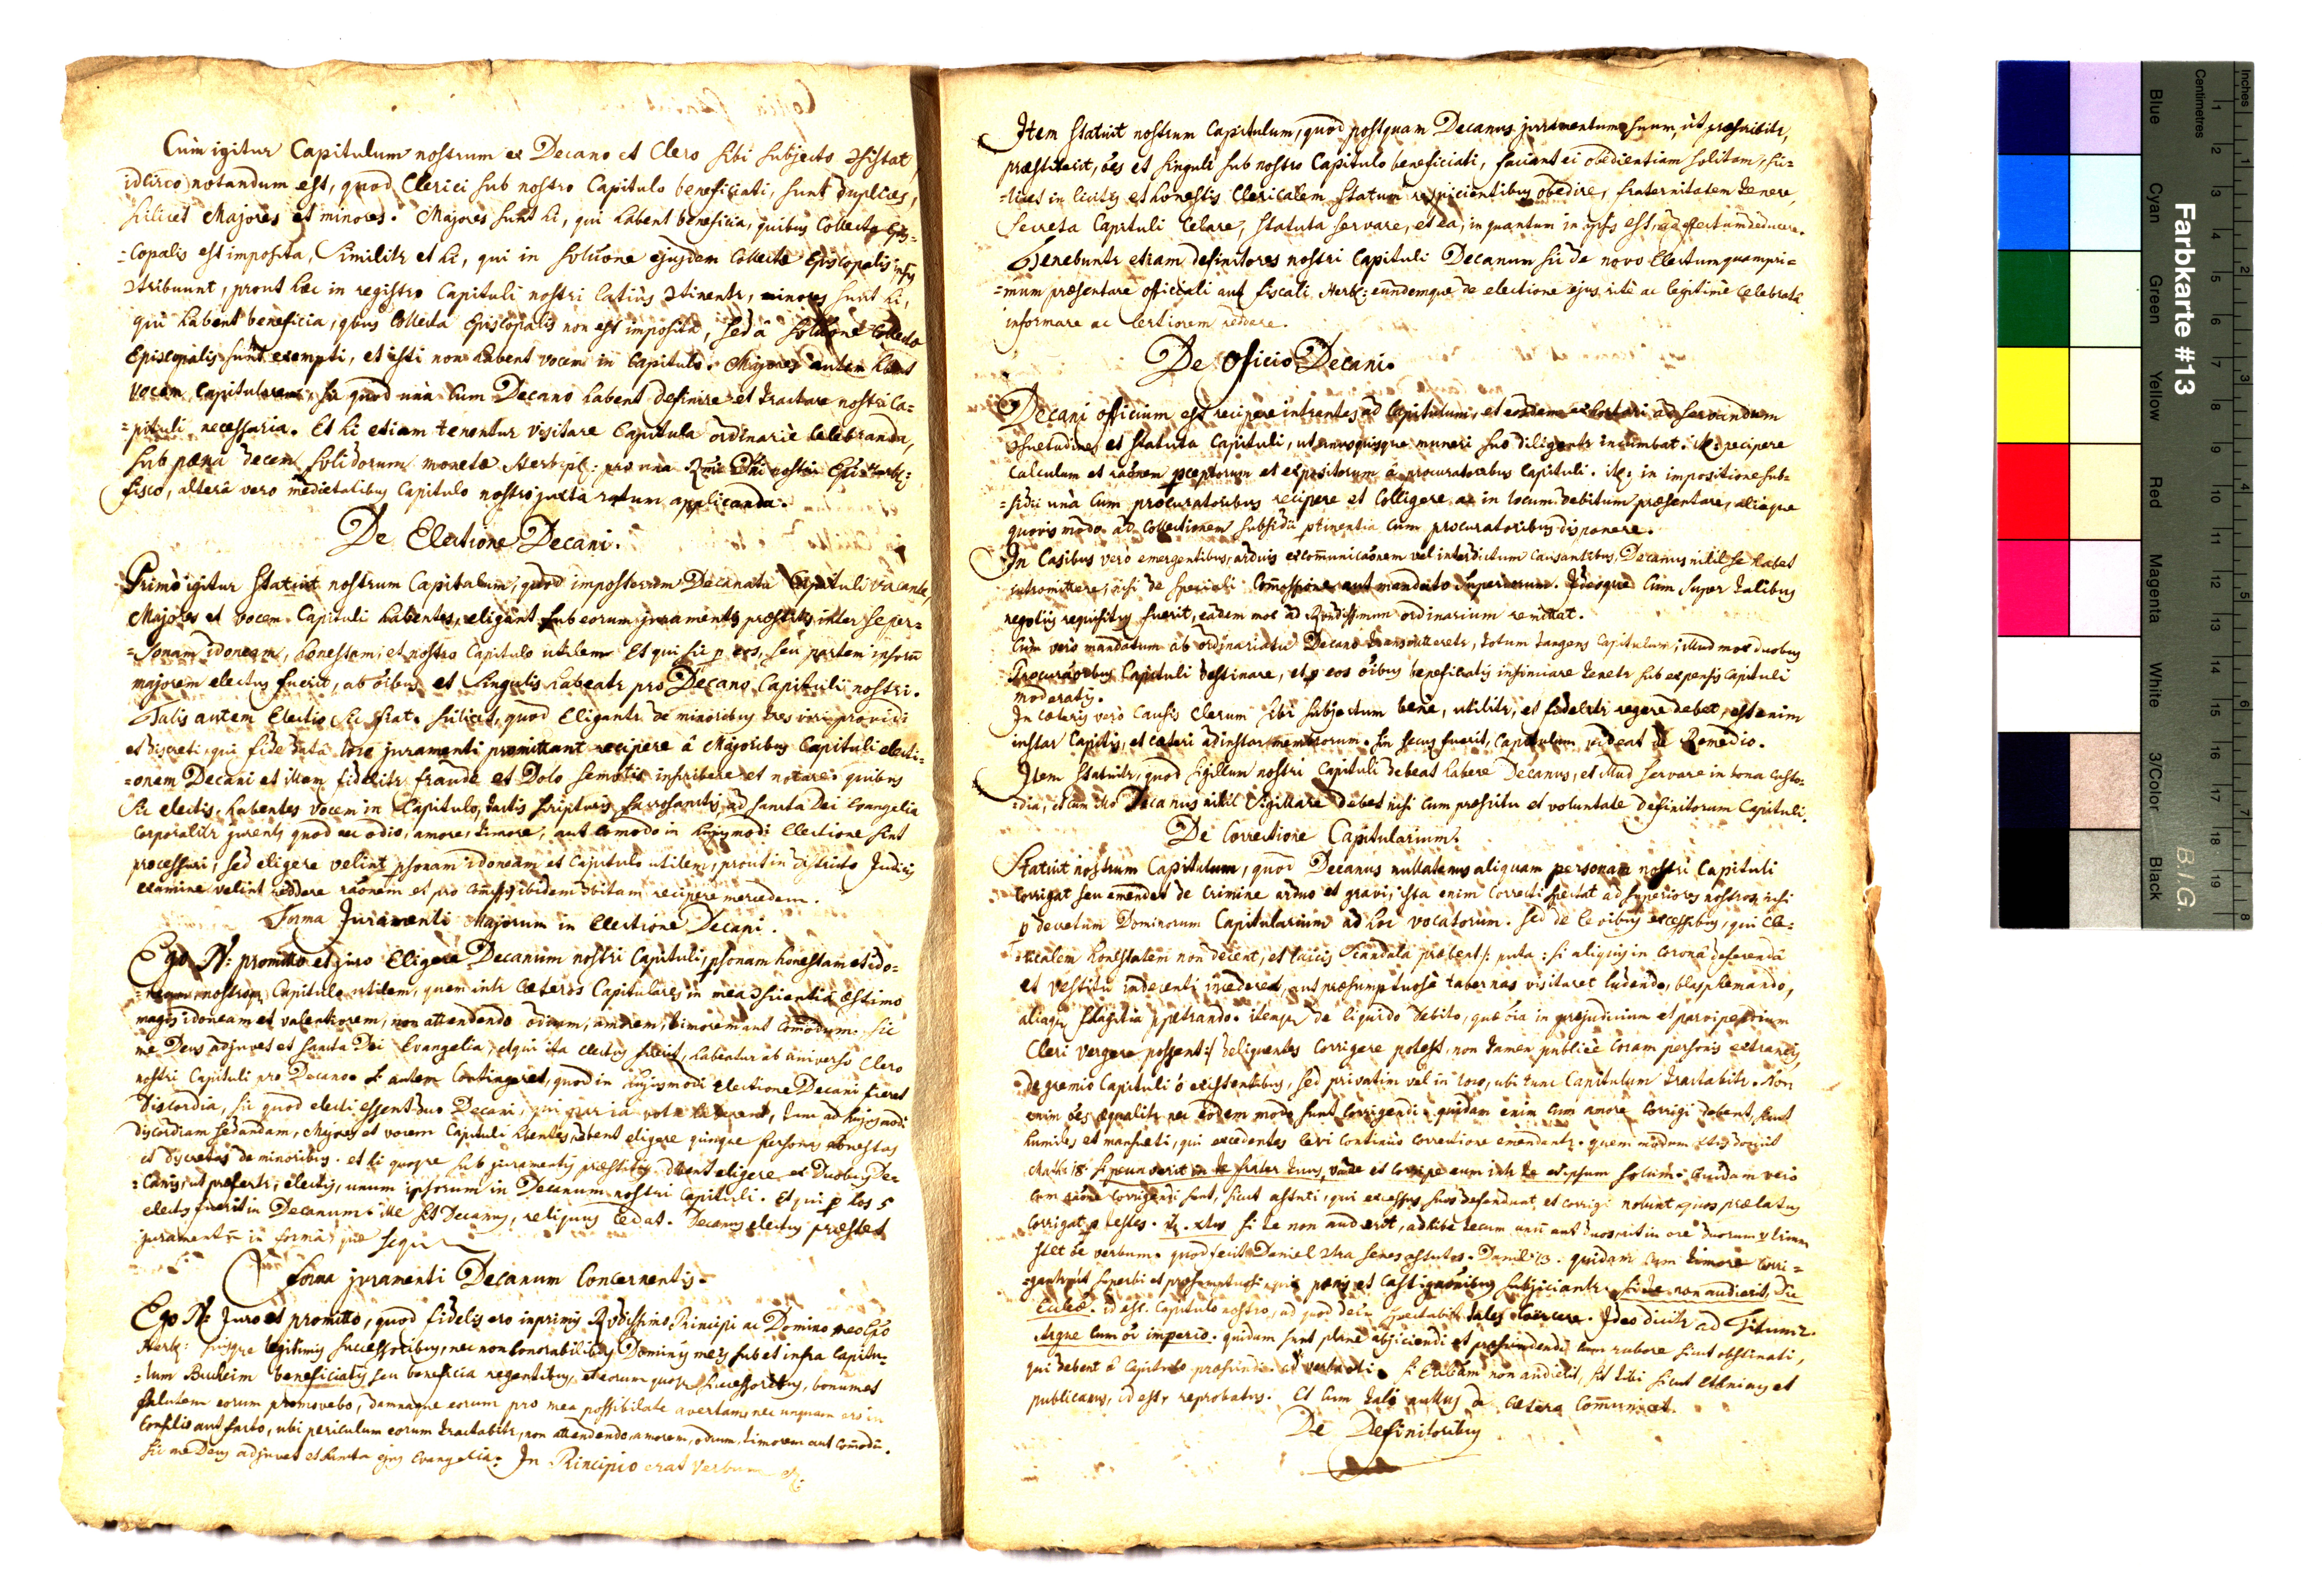 Cum igitur Capitulum nostrum ex Decano et Clero sibi subjecto ɔsistat,
idcirco notandum est, quod Clerici sub nostro Capitulo beneficiati, sunt duplices,
scilicet Majores et minores. Majores sunt hi, qui habent beneficia, quibus Collecta Epis=
=copalis est imposita, similitr et hi, qui in solutione ejusdem Collectæ Episcopalis
ɔtribuunt, prout hæc in registro Capituli nostri latius ɔtinentr, minores sunt hi,
qui habent beneficia, quibus Collecta Episcopalis non est imposita, sed à solutione Collectæ
Episcopalis sunt exempti, et isti non habent vocem in Capitulo. Majores autem hbent
vocem Capitularem, sic quod unà cum Decano habent definire et tractare nostri Ca=
=pituli necessaria. Et hi etiam tenentur visitare Capitula ordinariè celebranda,
sub pæna decem solidorum monetæ Herbipl: pro una Rmi Dni nostri Epi Herb:
fisco, alterâ vero medietatibus Capitulo nostro juxta ratum applicanda.
De Electione Decani.
Primò igitur statuit nostrum Capitulum, quod impostorum Decanatu Capituli vacante,
Majores et vocem Capituli habentes, eligant sub eorum juramentis præstitis inter se per=
=sonam idoneam, honestam, et nostro Capitulo utilem. Et qui sic p eos, seu partem
majorem electus fuerit, ab oibus et singulis habeatr pro Decano Capituli nostri.
Talis autem Electio sic fiat. scilicet, quod Eligantr de minoribus tres viri providi
et discreti, qui fide datâ loco juramenti promittant recipere â Majoribus Capituli electi=
=onem Decani et illam fidelitr fraude et Dolo semotis inscribere et notare. quibus
sic electis, habentes vocem in Capitulo, tactis scripturis sacrosanctis, ad sancta Dei Evangelia
corporalitr jurent, quod nec odio, amore, timore, aut comodo in hujusmodi Electione sint
processuri, sed eligere velint psonam idoneam et Capitulo utilem, prout in districto Judicij
examine velint reddere raonem et pro ibidem ɔbitam recipere mercedem.
Forma Juramenti Majorum in Electione Decani.
Ego N: promitto et juro Eligere Decanum nostri Capituli, psonam honestam et ido=
=neam, nostroq Capitulo utilem, quem intr cæteros Capitulares in mea ɔscientiâ æstimo
magis idoneam et valentiorem, non attendendo odium, amorem, timorem aut Comodum. Sic
me Deus adjuvet et sancta Dei Evangelia, et qui ita electus fuerit, habeatur ab universo Clero
nostri Capituli pro Decano. Si autem Contingeret, quod in hujusmodi electione Decani fieret
discordia, sic quod electi essent duo Decani, qui paria vota haberent, tunc ad hujusmodi
discordiam sedandam, Majores et vocem Capituli hbentes, debent eligere quinque personas honestas
et discretas de minoribus. et hi quoque sub juramentis præstitis debent eligere ex Duobus De=
=canis, ut præfertr, electis, unum ipsorum in Decanum nostri Capituli. Et qui p hos 5
electus fuerit in Decanum, ille sit Decanus, reliquus cedat. Decanus electus præstet
juramentum in formâ, quæ sequ
Forma juramenti Decanum Concernentis.
Ego N: Juro et promitto, quod fidelis ero inprimis Rvdissimo Principi ac Domino meo Epo
Herb: suisque legitimis successoribus, nec non honorabilibus Dominis meis sub et infra Capitu=
=lum Bucheim beneficiatis, seu beneficia regentibus, et eorum quoque successoribus, bonum et
salutem eorum promovebo, damnaque eorum pro mea possibilitate avertam, nec unquam ero in
Consilio aut facto, ubi periculum eorum tractabitr, non attendendo amorem, odium, timorem aut Comodu.
Sic me Deus adjuvet et Sancta ejus Evangelia: In Principio erat Verbum etc.
Item statuit nostrum Capitulum, quod postquam Decanus juramentum suum, ut præscribitr,
præstiterit, oes et singuli sub nostro Capitulo beneficiati, faciant ei obedientiam solitam, sci=
=licet in licitis et honestis Clericalem statum respicientibus obedire, fraternitatem tenere,
Secreta Capituli Celare, Statuta servare, et ea, in quantum in ipsis est, ad effectum deducere.
Tenebuntr etiam definitores nostri Capituli Decanum sic de novo Electum quampri=
=mum præsentare officiali aut fiscali Herb: eundemque de electione ejus ritè ac legitimè celebrata
informare ac Certiorem reddere.
De Officio Decani.
Decani officium est recipere intrantes ad Capitulum, et eosdem exhortari ad servandum
ɔsuetudines et statuta Capituli, ut unusquisque muneri suo diligentr incumbat. It: recipere
Calculum et raonem pceptorum et expositorum â procuratoribus Capituli. it: in impositione sub=
=sidii unà cum procuratoribus recipere et Colligere ac in locum debitum præsentare, aliaque
quovis modo ad Collectionem subsidii ptinentia cum procuratoribus disponere.
In Casibus verò emergentibus, arduis excomunicaonem vel interdictum Causantibus, Decanus nihil se habet
intromittere, nisi de speciali Comissione aut mandato Superiorum. Ideoque cum super talibus
negotiis requisitus fuerit, eadem mox ad Rvdissimum ordinarium remittat.
Cum verò mandatum ab ordinariatu Decano transmitteretr, totum tangens Capitulum, illud mox duobus
Procuratoribus Capituli destinare, et p eos oibus beneficiatis insinuare tenetr sub expensis Capituli
moderatis.
In cæteris verò Causis Clerum sibi subjectum bene, utilitr, et fidelitr regere debet, est enim
instar Capitis, et cæteri ad instar membrorum. Sin secus fuerit, Capitulum videat de Remedio.
Item statuitr, quod sigillum nostri Capituli debeat habere Decanus, et illud servare in bona custo=
=dia, et cum illo Decanus nihil sigillare debet nisi cum præscitu et voluntate definitorum Capituli.
De Correctione Capitularium.
Statuit nostrum Capitulum, quod Decanus nullatenus aliquam personam nostri Capituli
corrigat seu emendet de Crimine arduo et gravi, ista enim Correctio spectat ad superiores nostros, nisi
p decretum Dominorum Capitularium ad hoc vocatorum. Sed de levibus excessibus, qui Cle=
=ricalem honestatem non decent, et laicis scandala præbent /: puta: si aliquis in coronâ deferendâ
et vestitu indecenti incederet, aut præsumptuosè tabernas visitaret ludendo, blasphemando,
aliaque flagitia ppetrando. itemque de liquido debito, quæ oia in præjudicium et parvipendium
Cleri vergere possent:/ deliquentes corrigere potest, non tamen publicè coram personis extraneis,
de gremio Capituli ō existentibus, sed privatim vel in loco, ubi tunc Capitulum tractabitr. Non
enim oes æqualitr nec eodem modo sunt corrigendi. quidam enim cum amore corrigi debent, sicut
humiles et mansueti, qui excedentes levi continuò correctione emendantr. quem modum Xtus docuit
Math: 18. Si peccaverit in te frater tuus, vade et corripe eum intr te et ipsum solum. Quidam verò
cum raone corrigendi sunt, sicut astuti, qui excessus suos defendunt, et corrigi nolunt, quos prælatus
corrigat p testes. Si te non audierit, adhibe tecum unum aut duos, ut in ore duorum vl trium
stet oe verbum. quod fecit Daniel ɔtra senes astutos. Daniel: 13. quidam cum timore corri=
=gantr, ut superbi et præsumptuosi, qui pænis et castigaonibus subjiciantr. Si te non audierit, Dic
Ecclæ. id est, Capitulo nostro, ad quod dein spectabit tales coercere. Ideo dicitr ad Titum 2.
Argue cum oi imperio. quidam sunt planè abjiciendi et præscindendi cum rubore sicut obstinati,
qui debent â Capitulo præscindi. Si Ecclesiam non audierit, sit tibi sicut Ethnicus et
publicanus, id est, reprobatus. Et cum tali nullus de cætero comunicet.
De Definitoribus
Farbkarte #13
B.I.G.
Inches
Centimetres
1 2 3 4 5 6 7 8
1 2 3 4 5 6 7 8 9 10 11 12 13 14 15 16 17 18 19
Blue Cyan Green Yellow Red Magenta White 3/Color Black